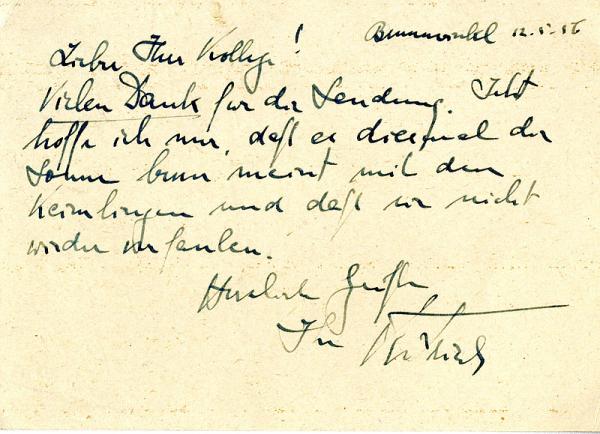 Brunnwinkl 12.5.56
Lieber Herr Kollege!
Vielen Dank für die Sendung. Jetzt
hoffe ich nur, daß es diesmal die
Sonne besser meint mit den
Keimlingen und daß sie nicht
wieder verfaulen.
Herzliche Grüße
Ihr